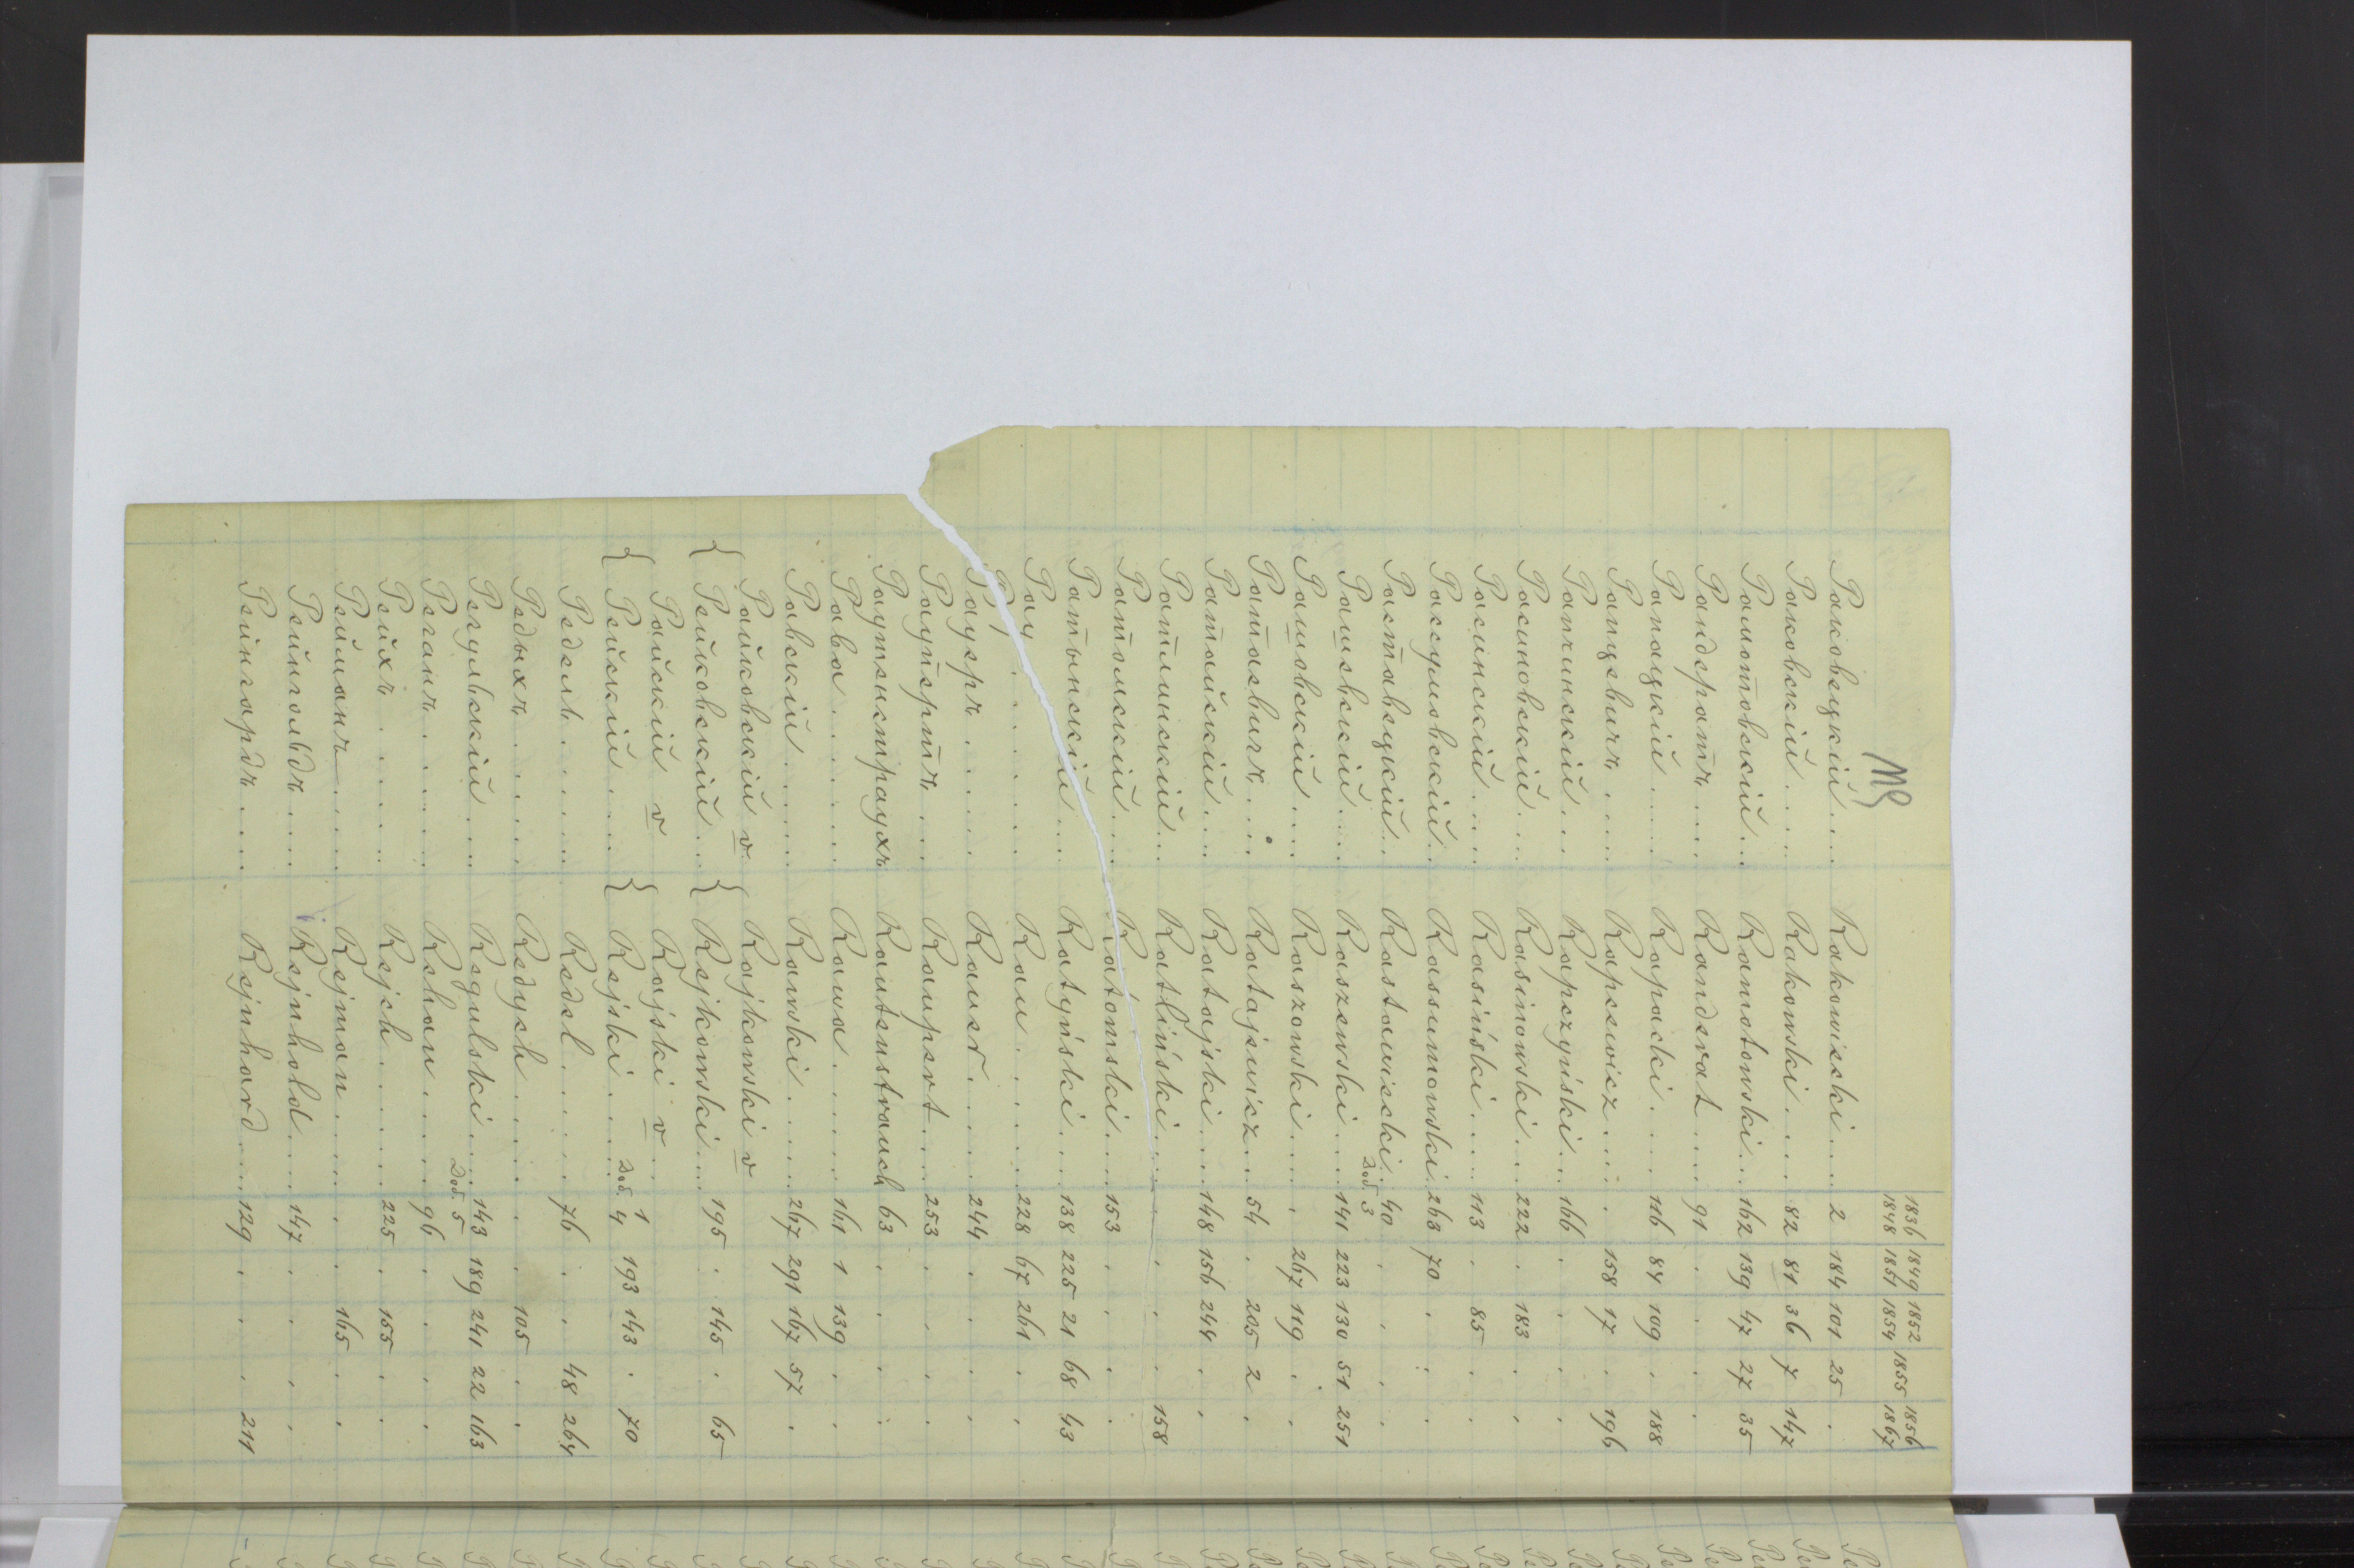 1836 1849 1852 1855 1856
1848 1851 1854 1867
Раковецкій ... Rakowiecki ... 2 184 101 25 .
Раковскій .... Rakowski .... 82 81 36 7 147
Рамотовскій ... Ramotowski ... 162 139 47 27 35
Рандератъ .... Randerat .... 91 . . . .
Рапацкій ..... Rapacki .... 116 84 109 . 188
Рапцевичъ .... Rapcewicz .... . 158 17 . 196
Рапчинскій ... Rapczyński ... 166 . . . .
Расиновскій ... Rasinowski ... 222 . 183 . .
Расинскій .... Rasiński .... 113 . 85 . .
Рассумовскій .. Rassumowski . 263 70 . . .
Раставецкій .. Rastawiecki .. 40 . . . .
Рашевскій .... Raszewski ... 141 доб. 3 223 130 51 251
Рашовскій .... Raszowski .... . 267 119 . .
Ратаевичъ .... Ratajewicz ... 54 . 205 2 .
Ратайскій ... Ratajski .... 148 156 244 . .
Ратлинскій .. Ratliński .... . . . . 158
Ратомскій ... Ratomski .... 153 . . . .
Ратынскій ... Ratyński .... 138 225 21 68 43
Рау ....... Rau ...... 228 67 261 . .
Рауеръ ..... Rauer ..... 244 . . . .
Раупертъ ... Raupert .... 253 . . . .
Раутенштраухъ Rautenstrauch 63 . . . .
Рава ...... Rawa ...... 161 1 139 . .
Равскій ..... Rawski ..... 267 291 167 57 .
{ Райковскій v { Rajkowski v
Рейковскій ... Rejkowski ... 195 . 145 . 65
{ Райскій v { Rajski v ..
Рейскій .... Rejski .... доб. 4 1 193 143 . 70
Редель ..... Redel ..... 76 . . 48 264
Редыхъ ..... Redych ..... . . 105 . .
Регульскій ... Regulski ... 143 доб. 5 189 241 22 163
Реганъ ..... Rehan ..... 96 . . . .
Рейхъ ...... Rejch ...... 225 . 155 . .
Рейманъ .... Rejman ..... . . 165 . .
Рейнгольдъ ... Rejnhold ... 147 . . . .
Рейнгардъ .... Rejnhard ... 129 . . . 211